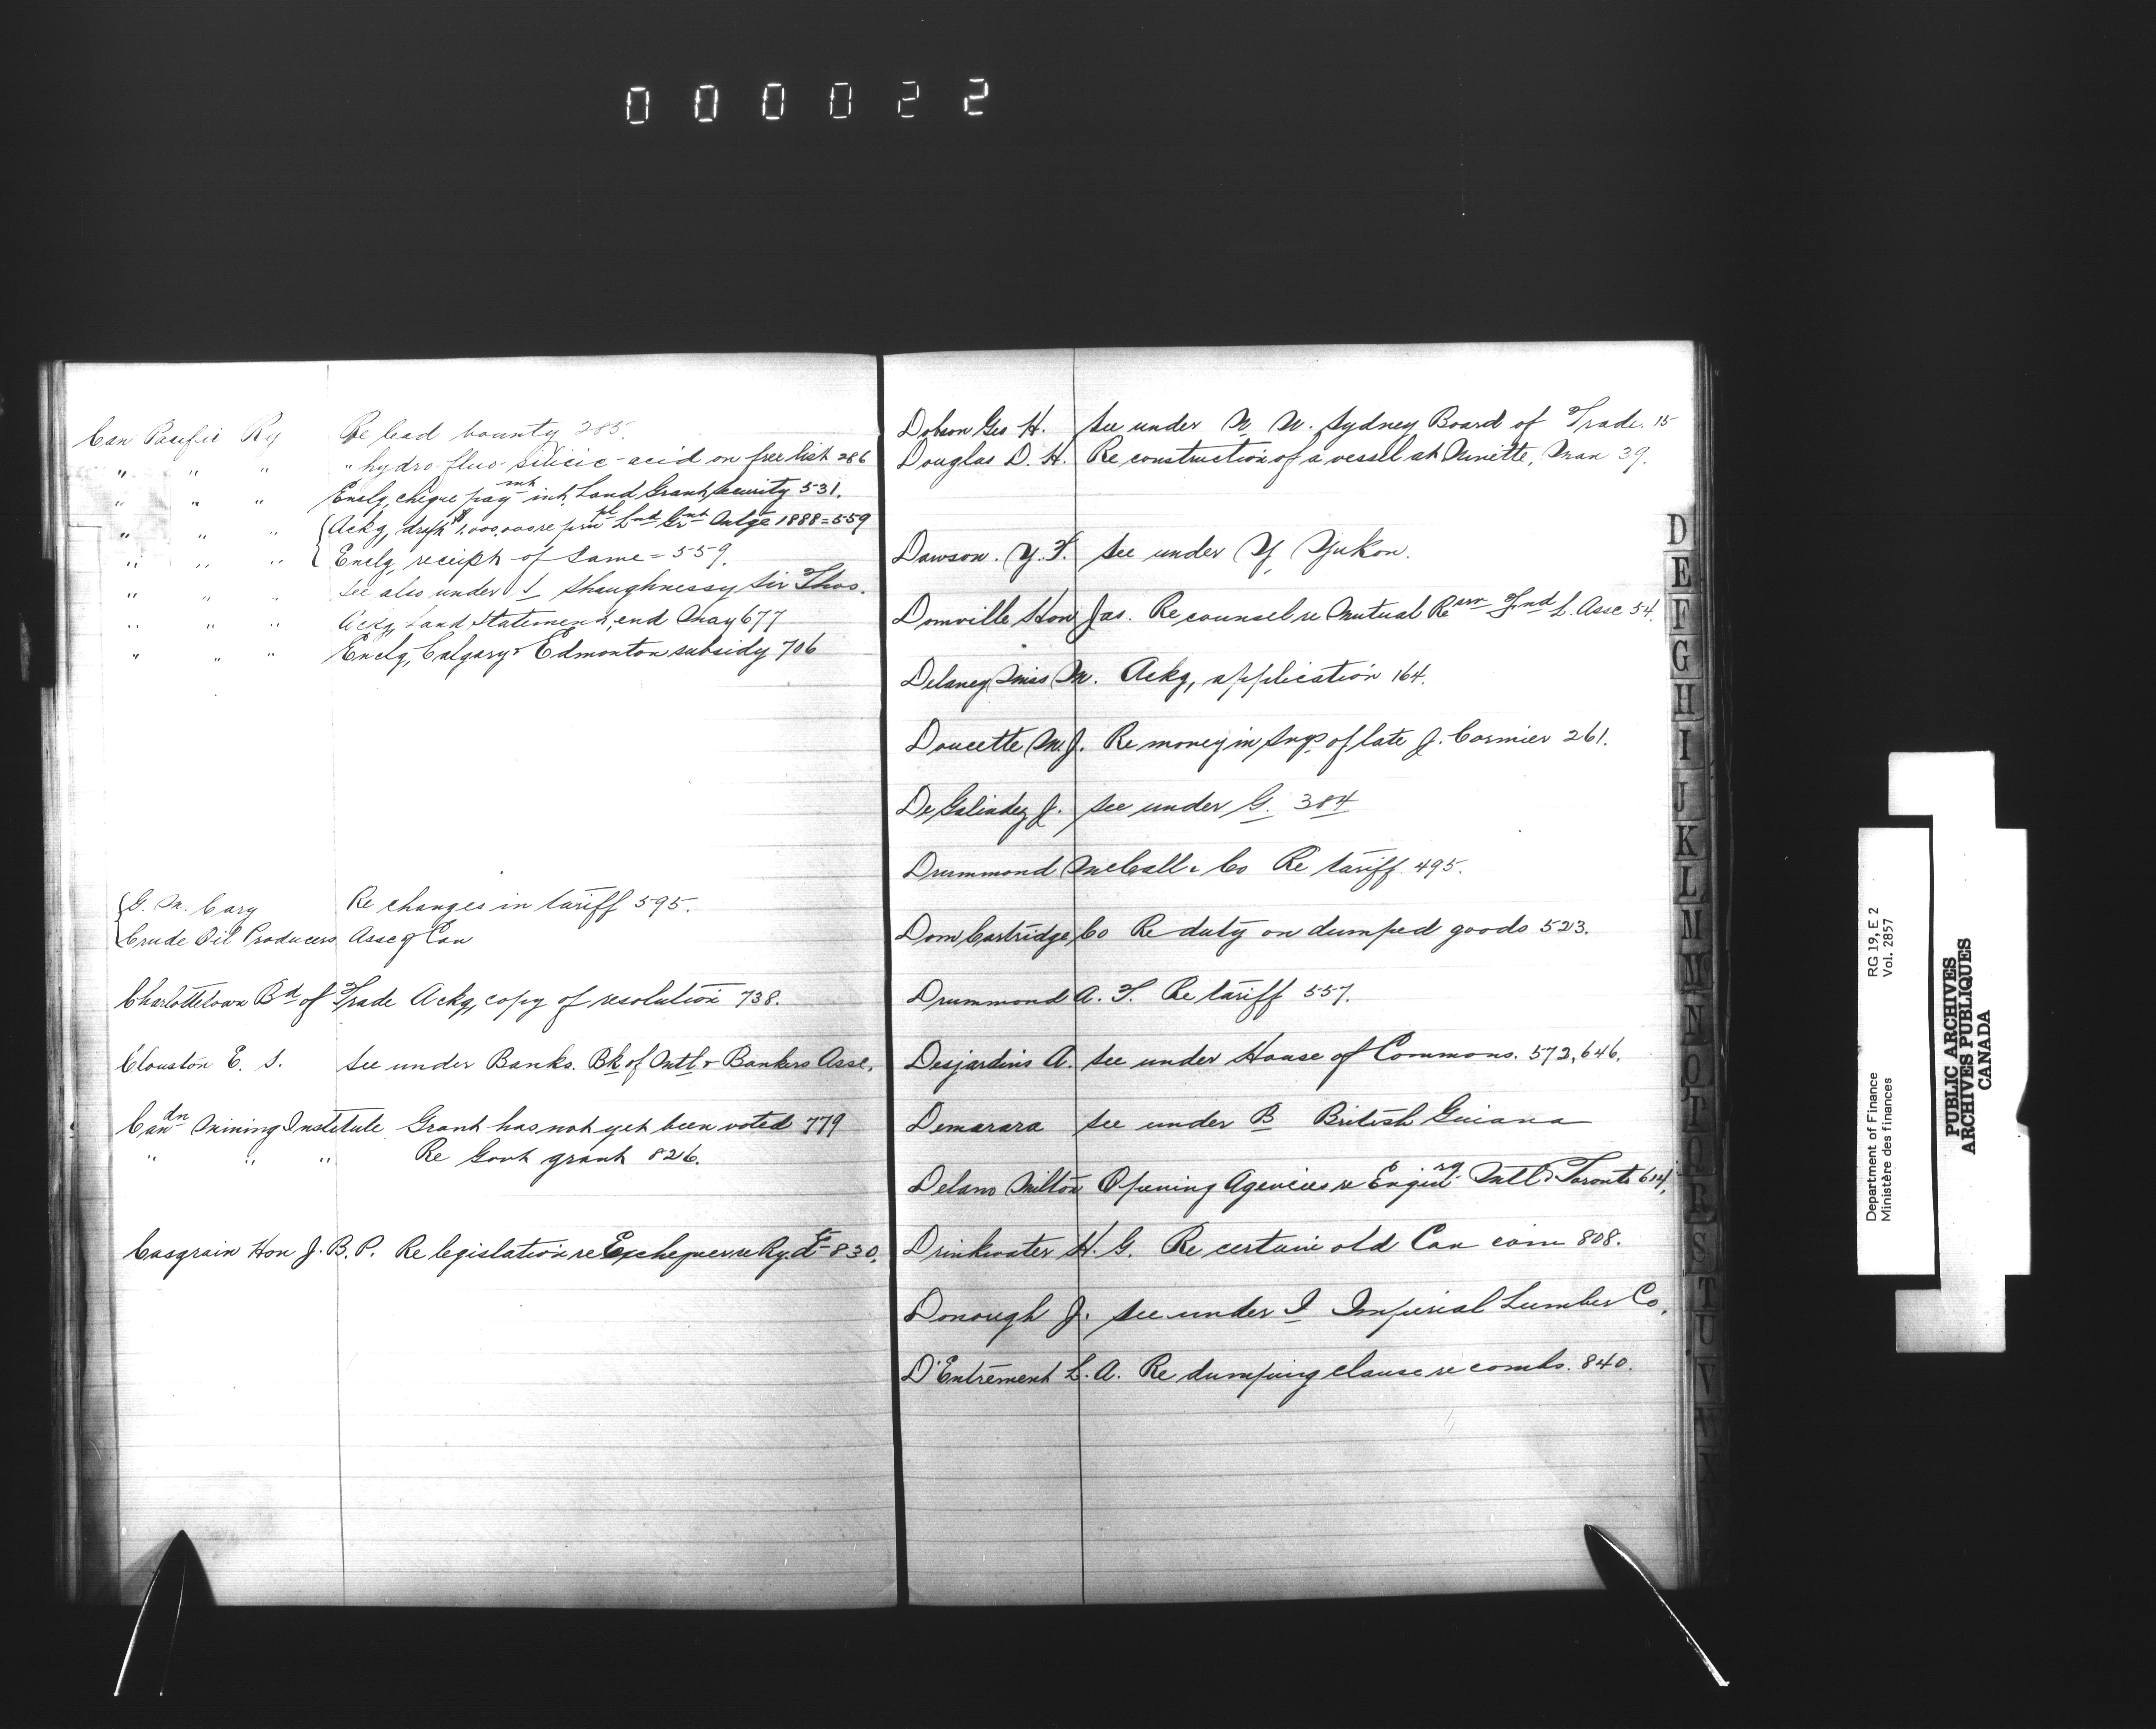 000022
Can Pacific Ry Re lead bounty 285.
" " " " hydro-fluo-silicic-acid on free list 286
" " " Enclg, cheque paymnt int. Land Grant security 531.
" " " Ackg, draft $1,000,000 re prinpl Lnd Grnt 1888 = 559
" " " Enclg, receipt of same = 559.
" " " See also under S Shaughnessy Sir Thos.
" " " Ackg, Land Statement, end May 677
" " " Enclg, Calgary & Edmonton subsidy 706
G. M. Cary Re changes in tariff 595.
Crude Oil Producers Assc of Can
Charlottetown Bd of Trade Ackg, copy of resolution 738.
Clouston E. S. See under Banks. Bk of Mtl & Bankers Assc.
Candn Mining Institute Grant has not yet been voted 779
" " " Re Govt grant 826.
Casgrain Hon J. B. P. Re legislation re Exchequer re Ry. 830.
Dobson Geo H. See under N N. Sydney Board of Trade. 15
Douglas D. H. Re construction of a vessel at Ninette, Man 39.
Dawson. Y. T. See under Y Yukon.
Domville Hon Jas. Re counsel re Mutual Resrv Fnd L. Assc 54.
Delaney Miss M. Ackg, application 164.
Doucette M. J. Re money in Svgs of late J. Cormier 261.
De Galindez J. See under G. 384
Drummond McCall & Co Re tariff 495.
Dom Cartridge Co Re duty on dumped goods 523.
Drummond A. T. Re tariff 557.
Desjardins A. See under House of Commons. 572, 646.
Demarara See under B British Guiana
Delano Milton Opening Agencies re Mtl & Toronto 614.
Drinkwater H. G. Re certain old Can coin 808.
Donough J. See under I Imperial Lumber Co.
D'Entrement L. A. Re dumping clause re combs. 840.
D
E
F
G
H
I
J
K
L
M
Mc
N
O
P
Q
R
S
T
U
V
W
X
RG 19, E 2
Vol. 2857
Department of Finance
Ministère des finances
PUBLIC ARCHIVES
ARCHIVES PUBLIQUES
CANADA